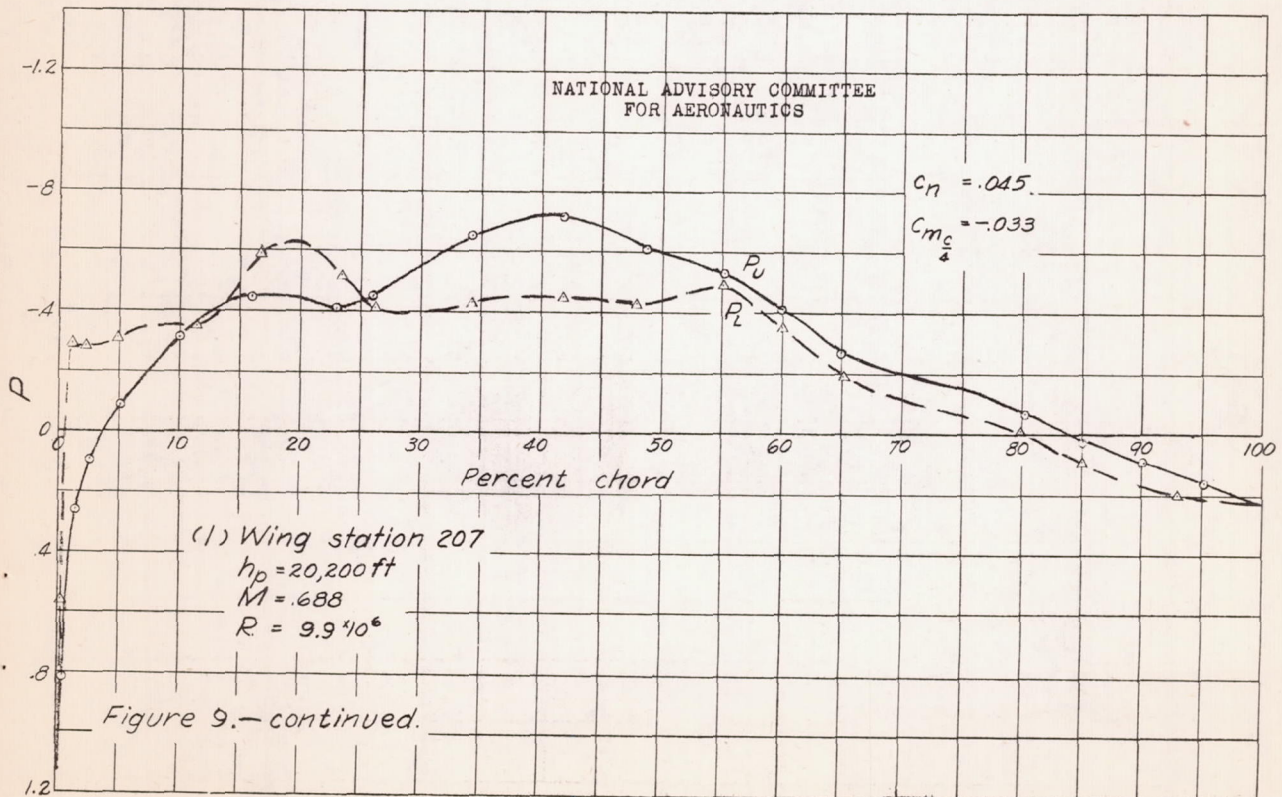 -1.2
NATIONAL ADVISORY COMMITTEE
FOR AERONAUTICS
-.8
cn = .045
cm c/4 = -.033
PU
-.4
PL
P
0
0 10 20 30 40 50 60 70 80 90 100
Percent chord
(l) Wing station 207
hp = 20,200 ft
.4
M = .688
R = 9.9 x 10⁶
.8
Figure 9.— continued.
1.2